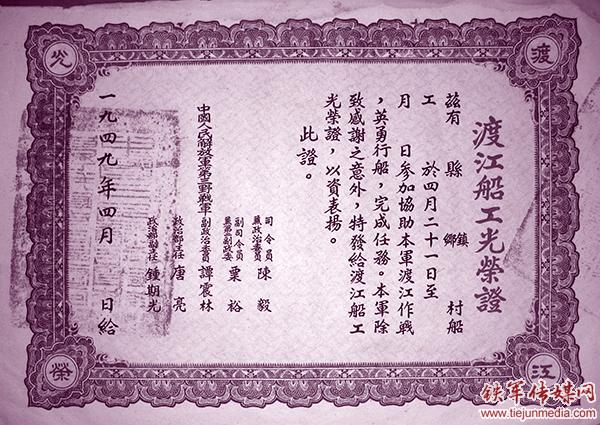 渡江船工光榮證
茲有 縣 鄉鎮 村船
工 於四月二十一日至
月 日參加協助本軍渡江作戰
，英勇行船，完成任務。本軍除
致感謝之意外，特發給渡江船工
光榮證，以資表揚。
此證。
中國人民解放軍第三野戰軍
司令員
兼政治委員 陳毅
副司令員
兼第二副政委 粟裕
副政治委員 譚震林
政治部主任 唐亮
政治部副主任 鍾期光
一九四九年四月 日給
渡
江
光
榮
铁军传媒网
www.tiejunmedia.com